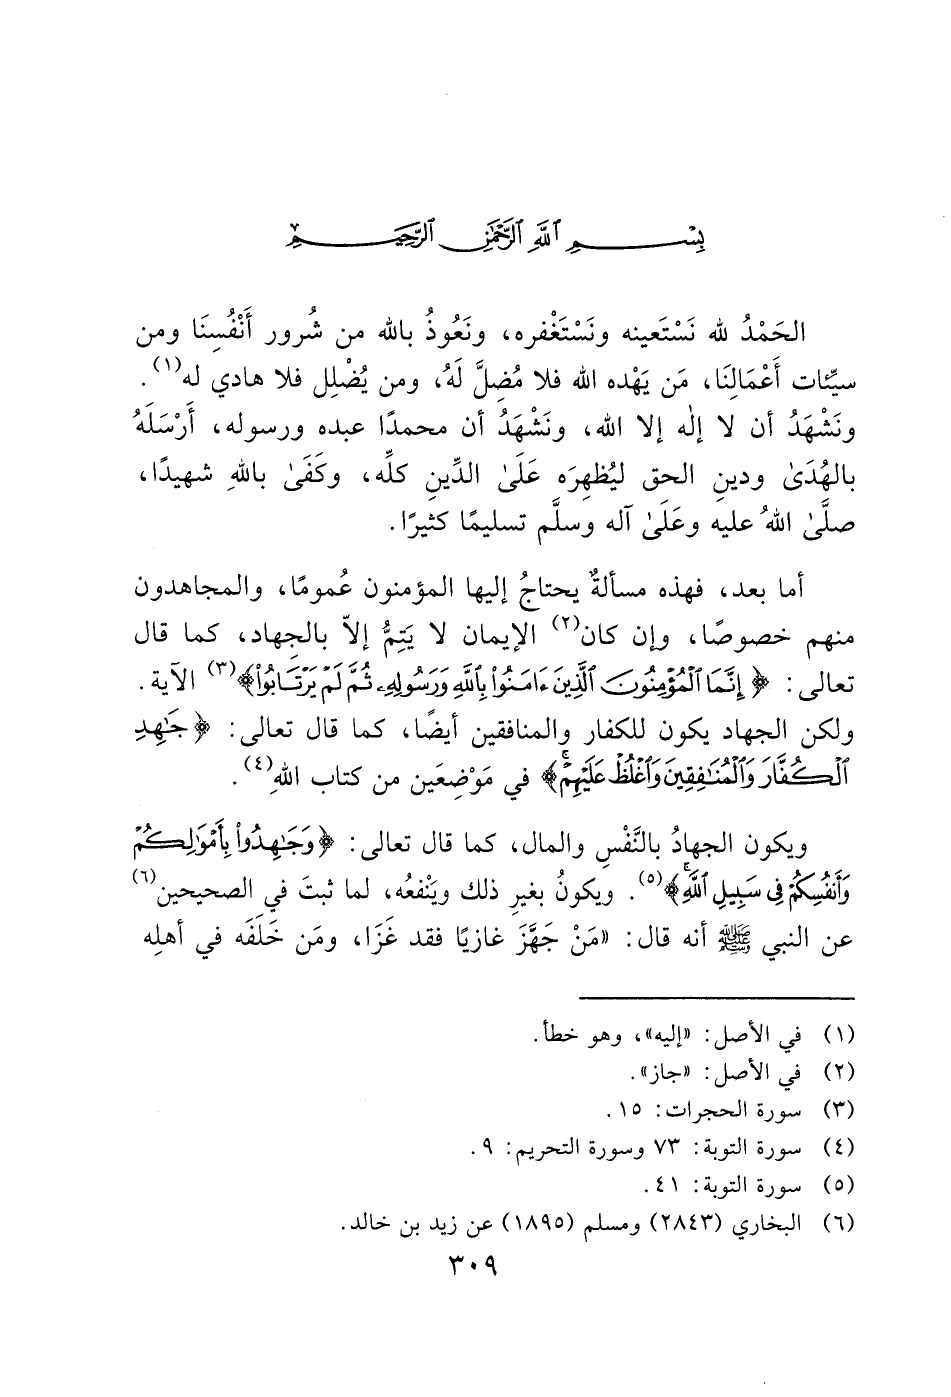 بِسْمِ ٱللَّهِ ٱلرَّحْمَٰنِ ٱلرَّحِيمِ
الحَمْدُ لله نَسْتَعينه ونَسْتَغْفره، ونَعُوذُ بالله من شُرور أَنْفُسِنَا ومن
سيِّئات أَعْمَالِنَا، مَن يَهْده الله فلا مُضِلَّ لَهُ، ومن يُضْلِل فلا هادي له(١).
ونَشْهَدُ أن لا إلٰه إلا الله، ونَشْهَدُ أن محمدًا عبده ورسوله، أَرْسَلَهُ
بالهُدَىٰ ودينِ الحق ليُظهِرَه عَلَىٰ الدِّينِ كلِّه، وكَفَىٰ باللهِ شهيدًا،
صلَّىٰ اللهُ عليه وعَلَىٰ آله وسلَّم تسليمًا كثيرًا.
أما بعد، فهذه مسألةٌ يحتاجُ إليها المؤمنون عُمومًا، والمجاهدون
منهم خصوصًا، وإن كان(٢) الإيمان لا يَتِمُّ إلاّ بالجهاد، كما قال
تعالى: ﴿إِنَّمَا ٱلْمُؤْمِنُونَ ٱلَّذِينَ ءَامَنُوا۟ بِٱللَّهِ وَرَسُولِهِۦ ثُمَّ لَمْ يَرْتَابُوا۟﴾(٣) الآية.
ولكن الجهاد يكون للكفار والمنافقين أيضًا، كما قال تعالى: ﴿جَٰهِدِ
ٱلْكُفَّارَ وَٱلْمُنَٰفِقِينَ وَٱغْلُظْ عَلَيْهِمْ ۚ﴾ في مَوْضِعَين من كتاب اللهِ(٤).
ويكون الجهادُ بالنَّفْسِ والمال، كما قال تعالى: ﴿وَجَٰهِدُوا۟ بِأَمْوَٰلِكُمْ
وَأَنفُسِكُمْ فِى سَبِيلِ ٱللَّهِ ۚ﴾(٥). ويكونُ بغيرِ ذلك ويَنْفعُه، لما ثبتَ في الصحيحين(٦)
عن النبي ﷺ أنه قال: «مَنْ جَهَّزَ غازيًا فقد غَزَا، ومَن خَلَفَه في أهلِه
(١) في الأصل: «إليه»، وهو خطأ.
(٢) في الأصل: «جاز».
(٣) سورة الحجرات: ١٥.
(٤) سورة التوبة: ٧٣ وسورة التحريم: ٩.
(٥) سورة التوبة: ٤١.
(٦) البخاري (٢٨٤٣) ومسلم (١٨٩٥) عن زيد بن خالد.
٣٠٩